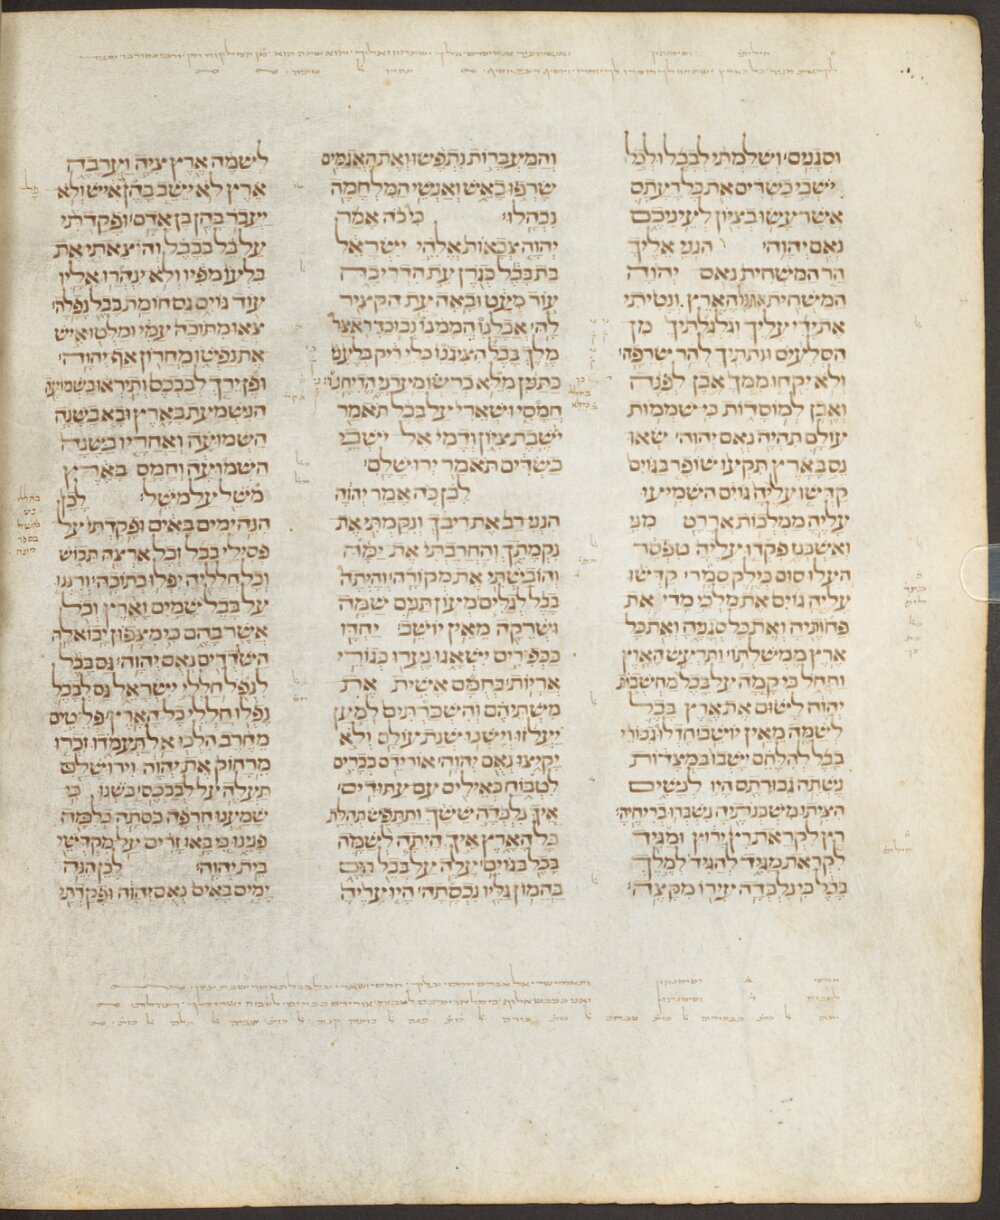 וסגנים׃ ושלמתי לבבל ולכל
יושבי כשדים את כל רעתם
אשר עשו בציון לעיניכם
נאם יהוה׃ הנני אליך
הר המשחית נאם יהוה
המשחית את כל הארץ ונטיתי
את ידי עליך וגלגלתיך מן
הסלעים ונתתיך להר שרפה׃
ולא יקחו ממך אבן לפנה
ואבן למוסדות כי שממות
עולם תהיה נאם יהוה׃ שאו
נס בארץ תקעו שופר בגוים
קדשו עליה גוים השמיעו
עליה ממלכות אררט מני
ואשכנז פקדו עליה טפסר
העלו סוס כילק סמר׃ קדשו
עליה גוים את מלכי מדי את
פחותיה ואת כל סגניה ואת כל
ארץ ממשלתו׃ ותרעש הארץ
ותחל כי קמה על בבל מחשבות
יהוה לשום את ארץ בבל
לשמה מאין יושב׃ חדלו גבורי
בבל להלחם ישבו במצדות
נשתה גבורתם היו לנשים
הציתו משכנתיה נשברו בריחיה׃
רץ לקראת רץ ירוץ ומגיד
לקראת מגיד להגיד למלך
בבל כי נלכדה עירו מקצה׃
והמעברות נתפשו ואת האגמים
שרפו באש ואנשי המלחמה
נבהלו׃ כי כה אמר
יהוה צבאות אלהי ישראל
בת בבל כגרן עת הדריכה
עוד מעט ובאה עת הקציר
לה׃ אכלנו הממנו נבוכדראצר
מלך בבל הציגנו כלי ריק בלענו
כתנין מלא כרשו מעדני הדיחנו׃
חמסי ושארי על בבל תאמר
ישבת ציון ודמי אל ישבי
כשדים תאמר ירושלם׃
לכן כה אמר יהוה
הנני רב את ריבך ונקמתי את
נקמתך והחרבתי את ימה
והובשתי את מקורה׃ והיתה
בבל לגלים מעון תנים שמה
ושרקה מאין יושב׃ יחדו
ככפרים ישאגו נערו כגורי
אריות׃ בחמם אשית את
משתיהם והשכרתים למען
יעלזו וישנו שנת עולם ולא
יקיצו נאם יהוה׃ אורידם ככרים
לטבוח כאילים עם עתודים׃
איך נלכדה ששך ותתפש תהלת
כל הארץ איך היתה לשמה
בבל בגוים׃ עלה על בבל הים
בהמון גליו נכסתה׃ היו עריה
לשמה ארץ ציה וערבה
ארץ לא ישב בהן כל איש ולא
יעבר בהן בן אדם׃ ופקדתי
על בל בבבל והוצאתי את
בלעו מפיו ולא ינהרו אליו
עוד גוים גם חומת בבל נפלה׃
צאו מתוכה עמי ומלטו איש
את נפשו מחרון אף יהוה׃
ופן ירך לבבכם ותיראו בשמועה
הנשמעת בארץ ובא בשנה
השמועה ואחריו בשנה
השמועה וחמס בארץ
משל על משל׃ לכן
הנה ימים באים ופקדתי על
פסילי בבל וכל ארצה תבוש
וכל חלליה יפלו בתוכה׃ ורננו
על בבל שמים וארץ וכל
אשר בהם כי מצפון יבוא לה
השדדים נאם יהוה׃ גם בבל
לנפל חללי ישראל גם לבבל
נפלו חללי כל הארץ׃ פלטים
מחרב הלכו אל תעמדו זכרו
מרחוק את יהוה וירושלם
תעלה על לבבכם׃ בשנו כי
שמענו חרפה כסתה כלמה
פנינו כי באו זרים על מקדשי
בית יהוה׃ לכן הנה
ימים באים נאם יהוה ופקדתי